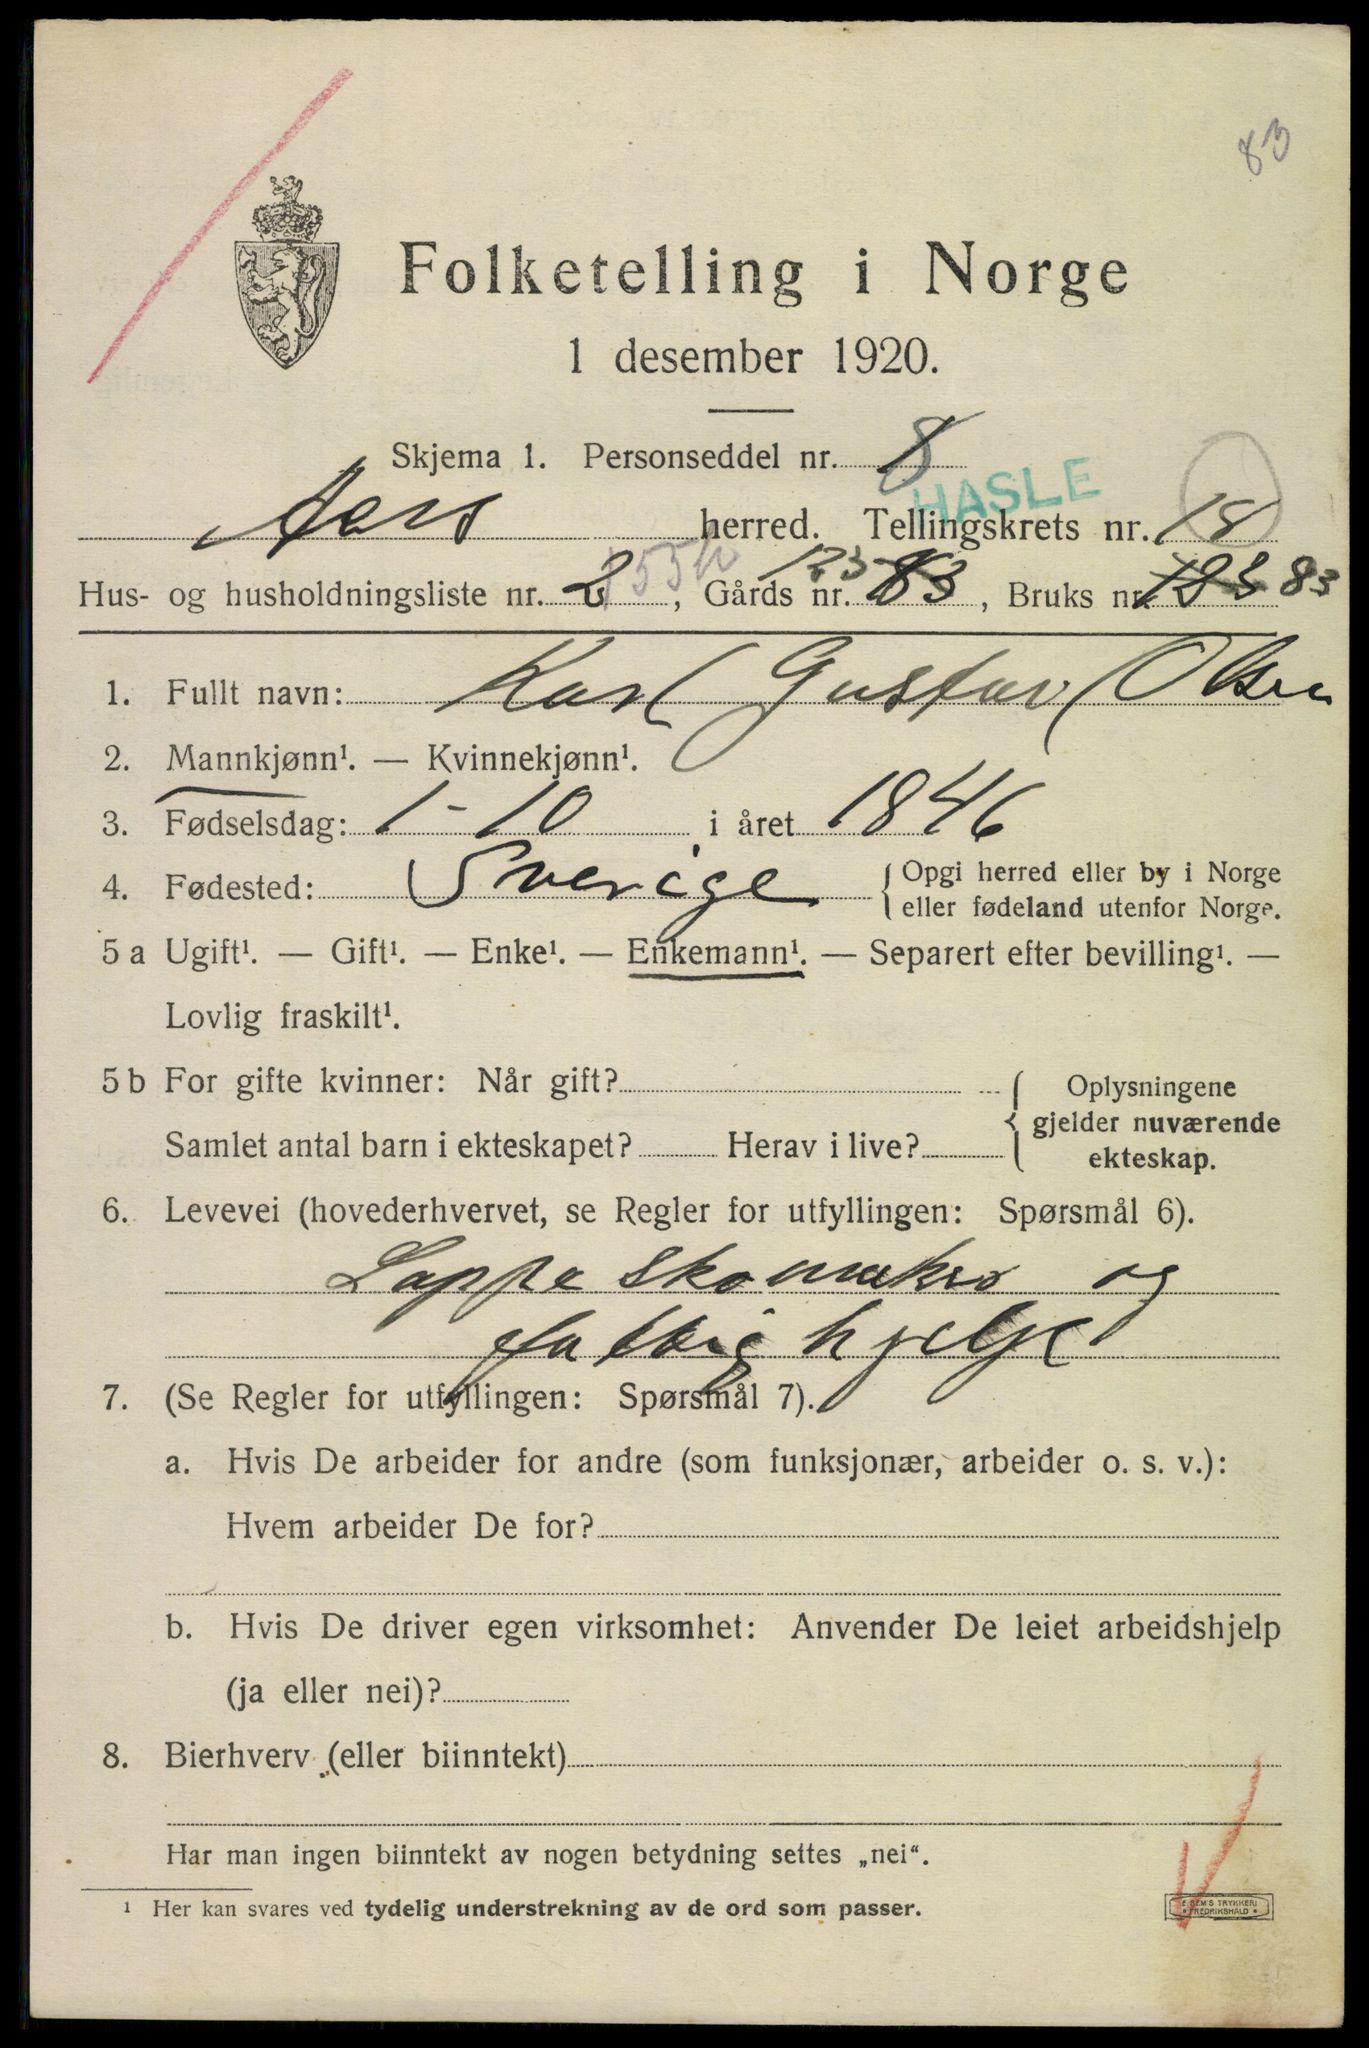 83
Folketelling i Norge
1 desember 1920.
Skjema 1. Personseddel nr. 8
HASLE
Aers herred. Tellingskrets nr. 18
Hus- og husholdningsliste nr. 2 , Gårds nr. 123 83 , Bruks nr. 123 83
1. Fullt navn: Karl Gustav Olsen
2. Mannkjønn¹. — Kvinnekjønn¹.
3. Fødselsdag: 1-10 i året 1846
4. Fødested: Sverige {Opgi herred eller by i Norge
eller fødeland utenfor Norge.
5 a Ugift¹. — Gift¹. — Enke¹. — Enkemann¹. — Separert efter bevilling¹. —
Lovlig fraskilt¹.
5 b For gifte kvinner: Når gift? { Oplysningene
gjelder nuværende
Samlet antal barn i ekteskapet? Herav i live? ekteskap.
6. Levevei (hovederhvervet, se Regler for utfyllingen: Spørsmål 6).
Lappe skomaker og
fattig hjelp
7. (Se Regler for utfyllingen: Spørsmål 7).
a. Hvis De arbeider for andre (som funksjonær, arbeider o. s. v.):
Hvem arbeider De for?
b. Hvis De driver egen virksomhet: Anvender De leiet arbeidshjelp
(ja eller nei)?
8. Bierhverv (eller biinntekt)
Har man ingen biinntekt av nogen betydning settes „nei“.
¹ Her kan svares ved tydelig understrekning av de ord som passer.
E SEM'S TRYKKERI
FREDRIKSHALD